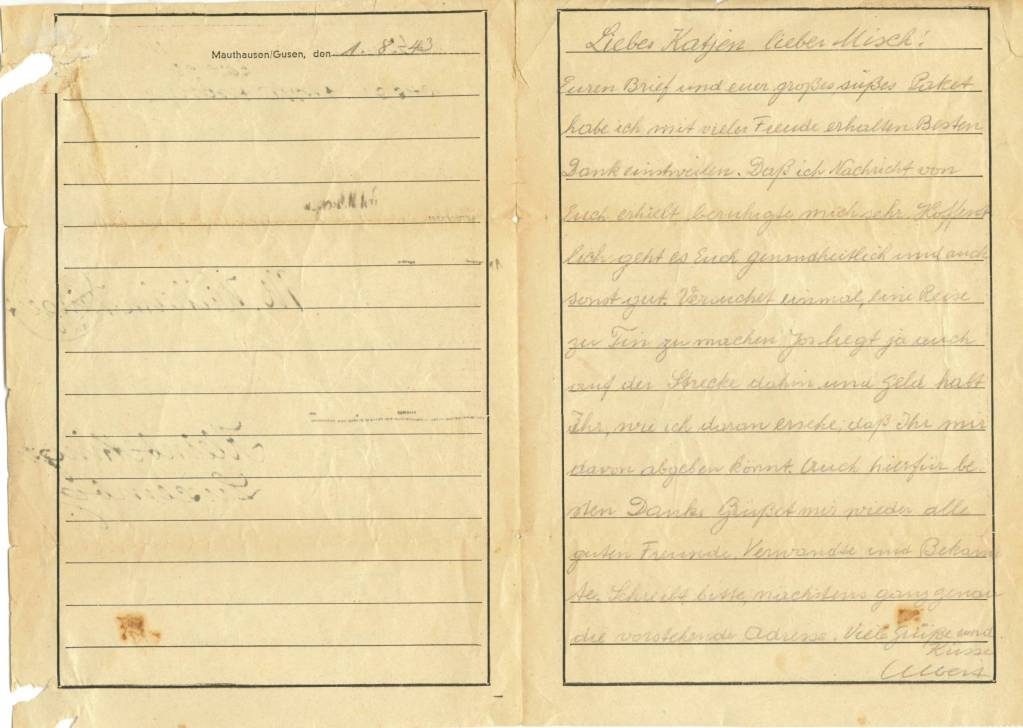 Mauthausen/Gusen, den 1. 8. 43
Liebes Katjen lieber Misch!
Euren Brief und euer großes süßes Paket
habe ich mit vieler Freude erhalten. Besten
Dank einstweilen. Daß ich Nachricht von
Euch erhielt, beruhigte mich sehr. Hoffent
lich geht es Euch gesundheitlich und auch
sonst gut. Versuchet einmal, eine Reise
zu Tin zu machen. Jos liegt ja auch
auf der Strecke dahin und Geld habt
Ihr, wie ich daran ersehe, daß Ihr mir
davon abgeben könnt. Auch hierfür be-
sten Dank. Grüßet mir wieder alle
guten Freunde, Verwandte und Bekann
te. Schreibt bitte, nächstens ganz genau
die vorstehende Adresse. Viele Grüße und
Küsse
Albert